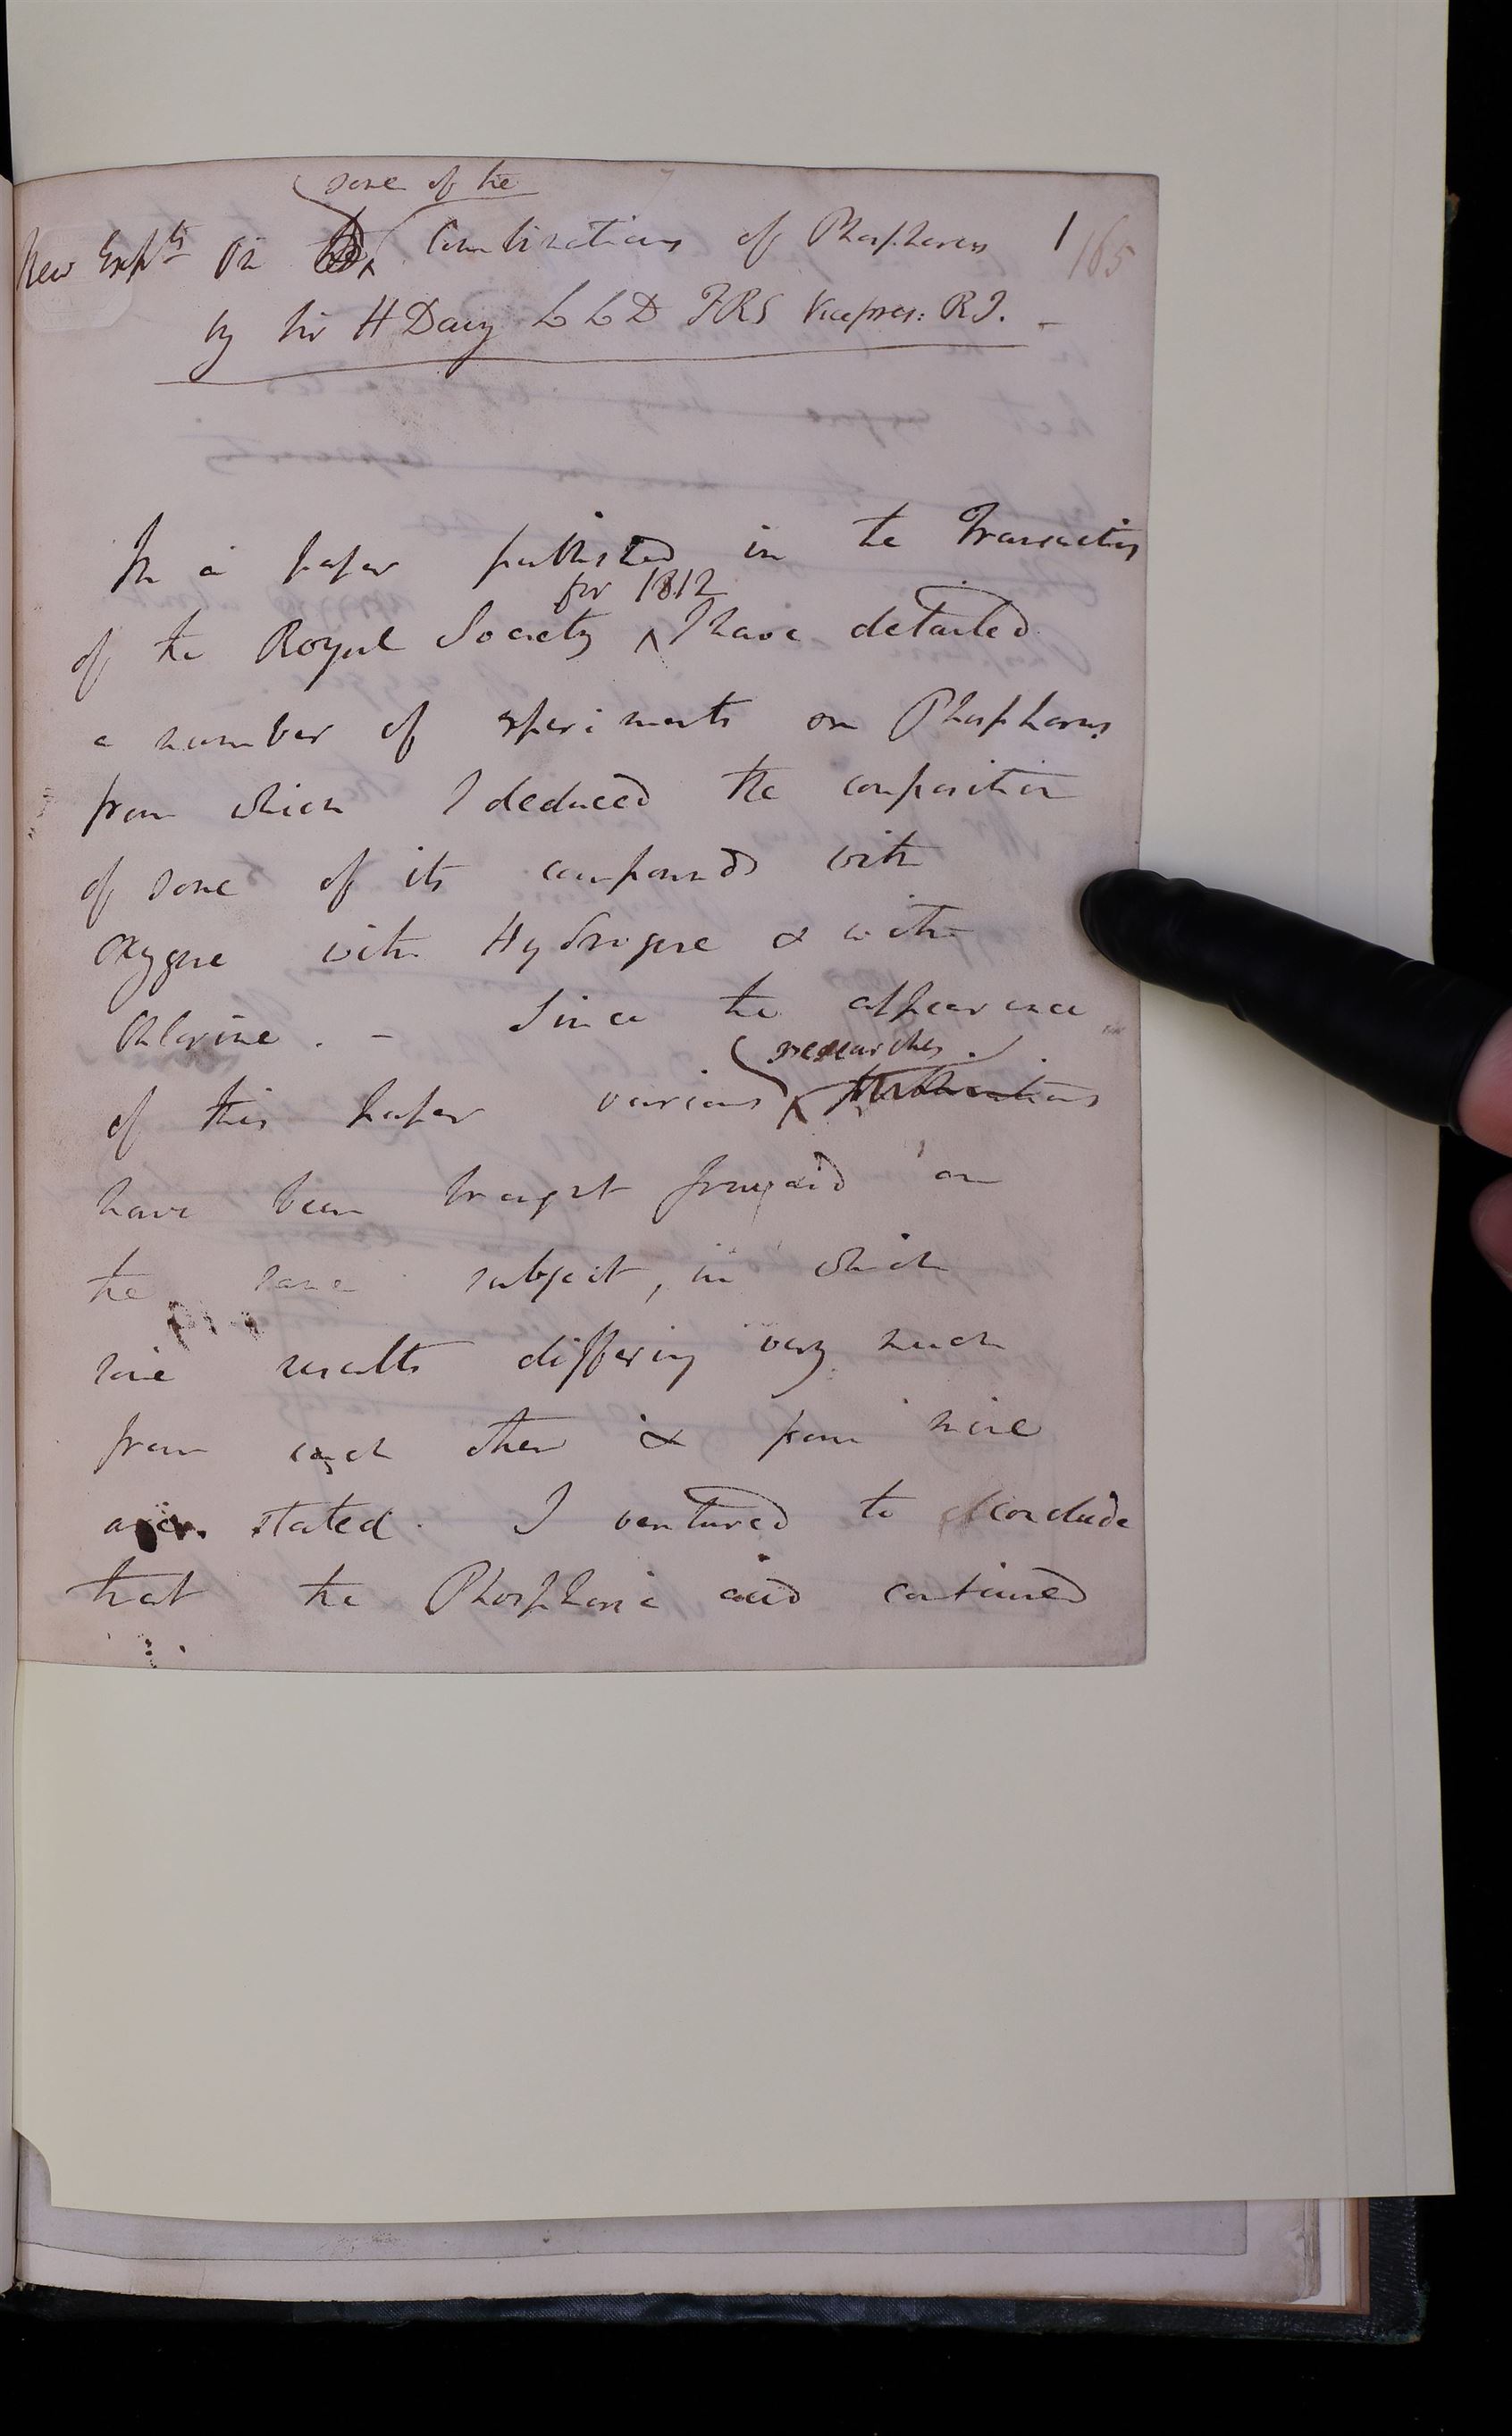 some of the
New Expts on Combinations of Phosphorus 1 165
by Sir H Davy LLD FRS Vicepres: RI. -
In a paper published in the Transactions
for 1812
of the Royal Society ^ I have detailed
a number of experiments on Phosphorus
from which I deduced the composition
of some of its compounds with
Oxygene with Hydrogene & with
Chlorine. - Since the appearance
researches.
of this paper various ^
have been brought forward on
the same subject, in which
some results differing very much
from each other & from mine
are stated. I ventured to conclude
that the Phosphoric acid contained